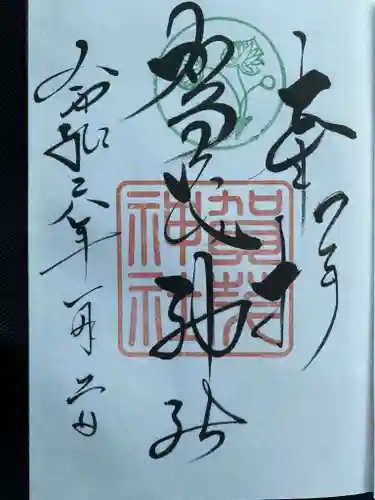 奉拝
賀茂神社
賀茂
神社
令和六年一月二日